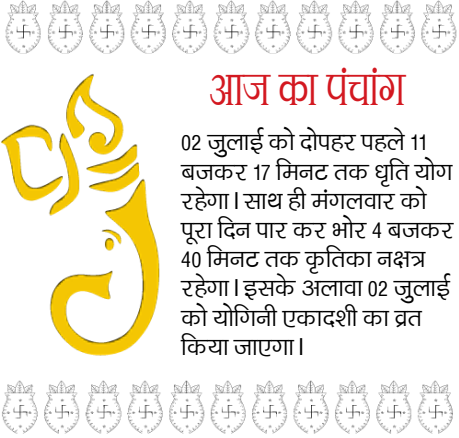 आज का पंचांग
02 जुलाई को दोपहर पहले 11
बजकर 17 मिनट तक धृति योग
रहेगा। साथ ही मंगलवार को
पूरा दिन पार कर भोर 4 बजकर
40 मिनट तक कृतिका नक्षत्र
रहेगा। इसके अलावा 02 जुलाई
को योगिनी एकादशी का व्रत
किया जाएगा।